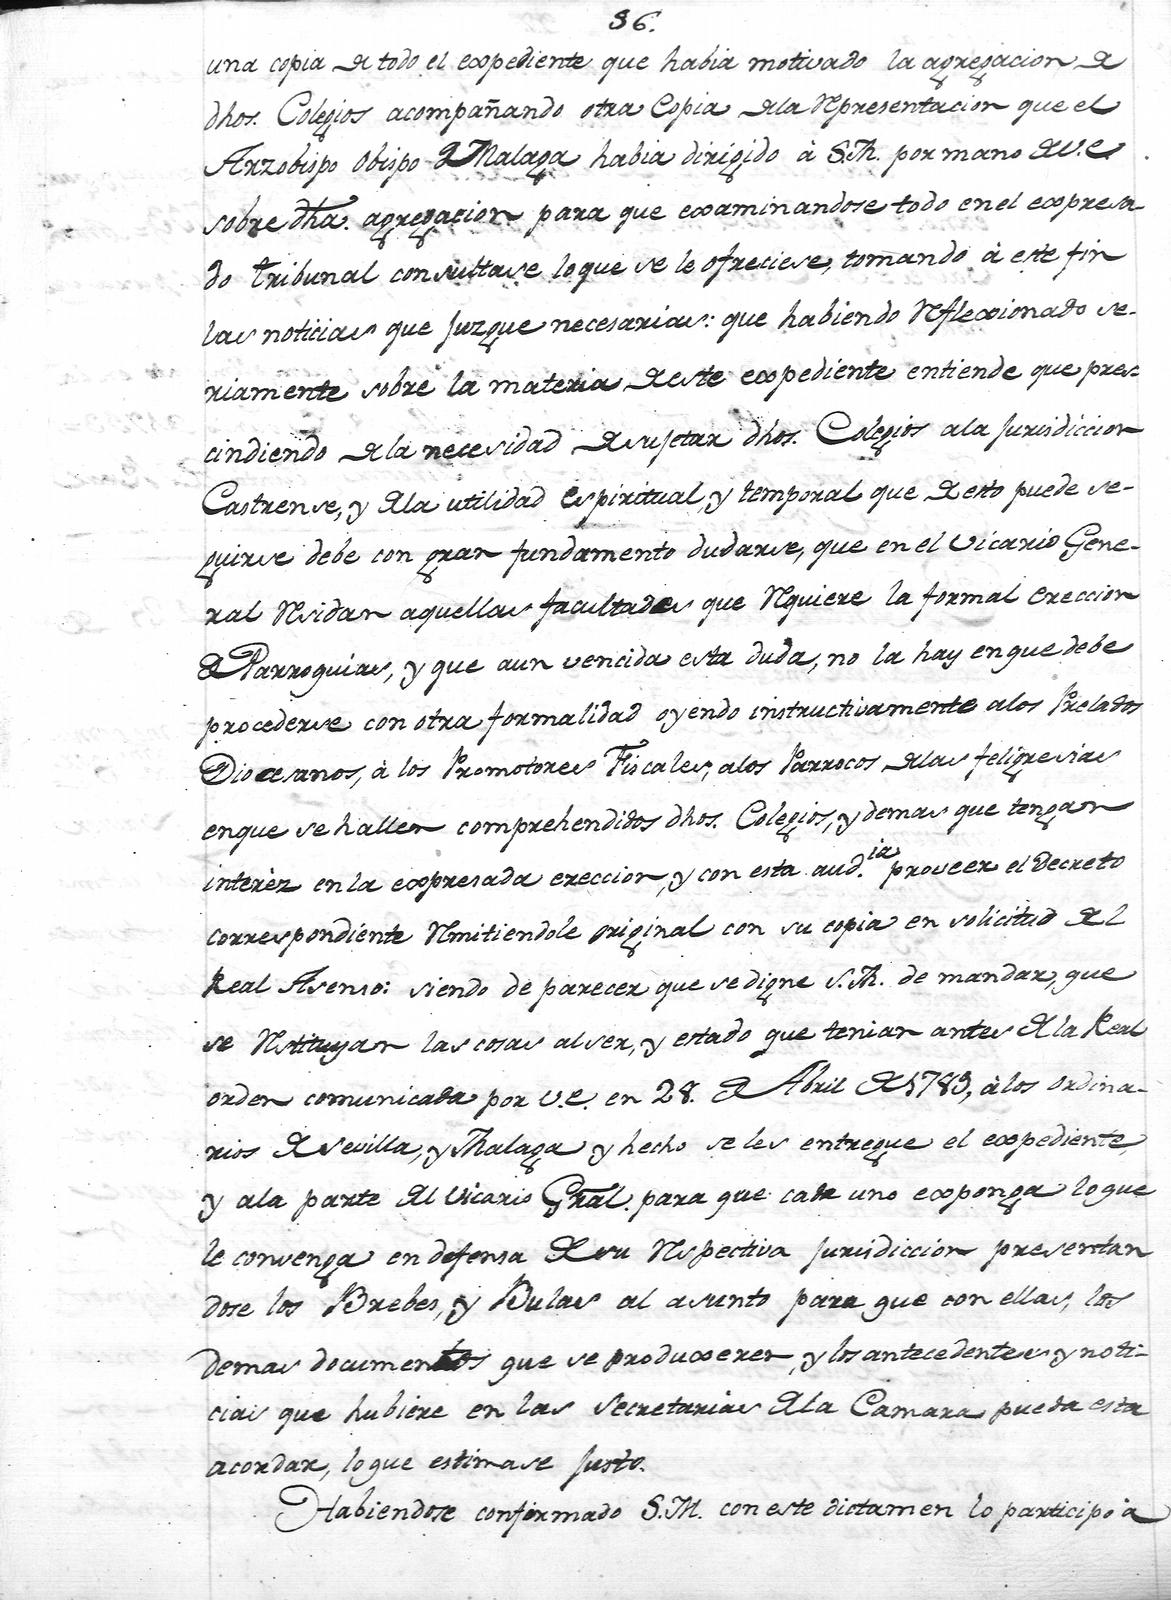 36.
una copia de todo el expediente que habia motivado la agregacion de
dhos. Colegios acompañando otra Copia dela Representacion que el
Arzobispo Obispo de Malaga habia dirigido à S.M. por mano de V.E
sobre dha. agregacion para que examinandose todo en el expresa
do tribunal consultase lo que se le ofreciese, tomando à este fin
las noticias que Juzgue necesarias: que habiendo Reflexionado se-
riamente sobre la materia de este expediente entiende que pres-
cindiendo dela necesidad de sujetar dhos. Colegios ala Jurisdiccion
Castrense, y dela utilidad espiritual, y temporal que de esto puede se-
guirse debe con gran fundamento dudarse, que en el Vicario Gene-
ral Residan aquellas facultades que Requiere la formal ereccion
de Parroquias, y que aun vencida esta duda, no la hay en que debe
procederse con otra formalidad oyendo instructivamente alos Prelados
Diocesanos, à los Promotores Fiscales, alos Parrocos delas feligresias
enque se hallen comprehendidos dhos. Colegios, y demas que tengan
interèz en la expresada ereccion, y con esta aud.ia proveer el Decreto
correspondiente Remitiendole original con su copia en solicitud del
Real Asenso: siendo de parecer que se digne S.M. de mandar, que
se Restituyan las cosas al ser, y estado que tenian antes de la Real
orden comunicada por V.E. en 28. de Abril de 1783, à los ordina-
rios de Sevilla, y Malaga y hecho se les entregue el expediente,
y ala parte del Vicario Gral. para que cada uno exponga lo que
le convenga en defensa de su Respectiva Jurisdiccion presentan
dose los Brebes, y Bulas al asunto para que con ellas, los
demas documentos que se produxeren, y los antecedentes y noti-
cias que hubiere en las Secretarias dela Camara pueda esta
acordar, lo que estimase Justo.
Habiendose conformado S.M. con este dictamen lo participo à